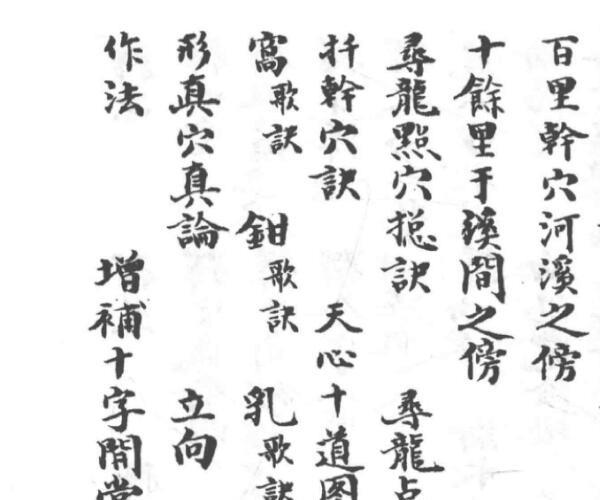 百里幹穴河溪之傍
十餘里于溪間之傍
尋龍點穴捴訣 尋龍点
扦幹穴訣 天心十道图
窩歌訣 鉗歌訣 乳歌訣
形真穴真論 立向
作法 增補十字開堂